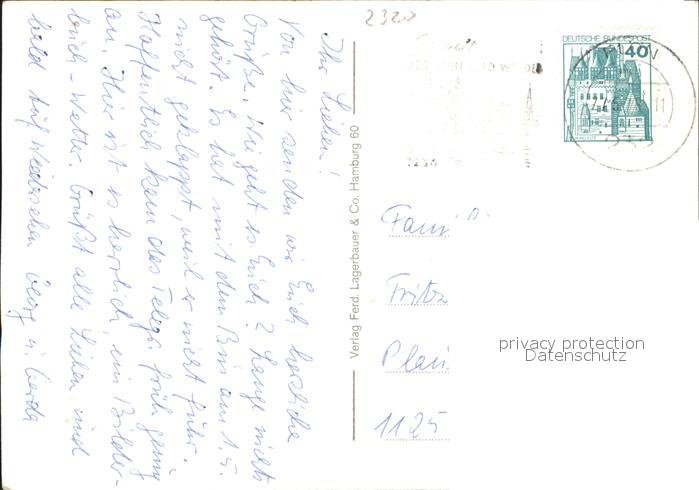 Ihr Lieben!
Von hier senden wir Euch herzliche
Grüße. Wie geht es Euch? Lange nichts
gehört. Es hat mit dem Bus am 1.5.
nicht geklappt, weil er nicht fuhr.
Hoffentlich kam das Telegr. früh genug
an. Hier ist es herrlich, ein Bilder-
buch-Wetter. Grüßt alle Lieben und
bald auf Wiedersehen Georg u. Gerda
Verlag Ferd. Lagerbauer & Co. Hamburg 60
2320
DEUTSCHE BUNDESPOST
40
Fami
Fritz
Plau
1125
privacy protection
Datenschutz